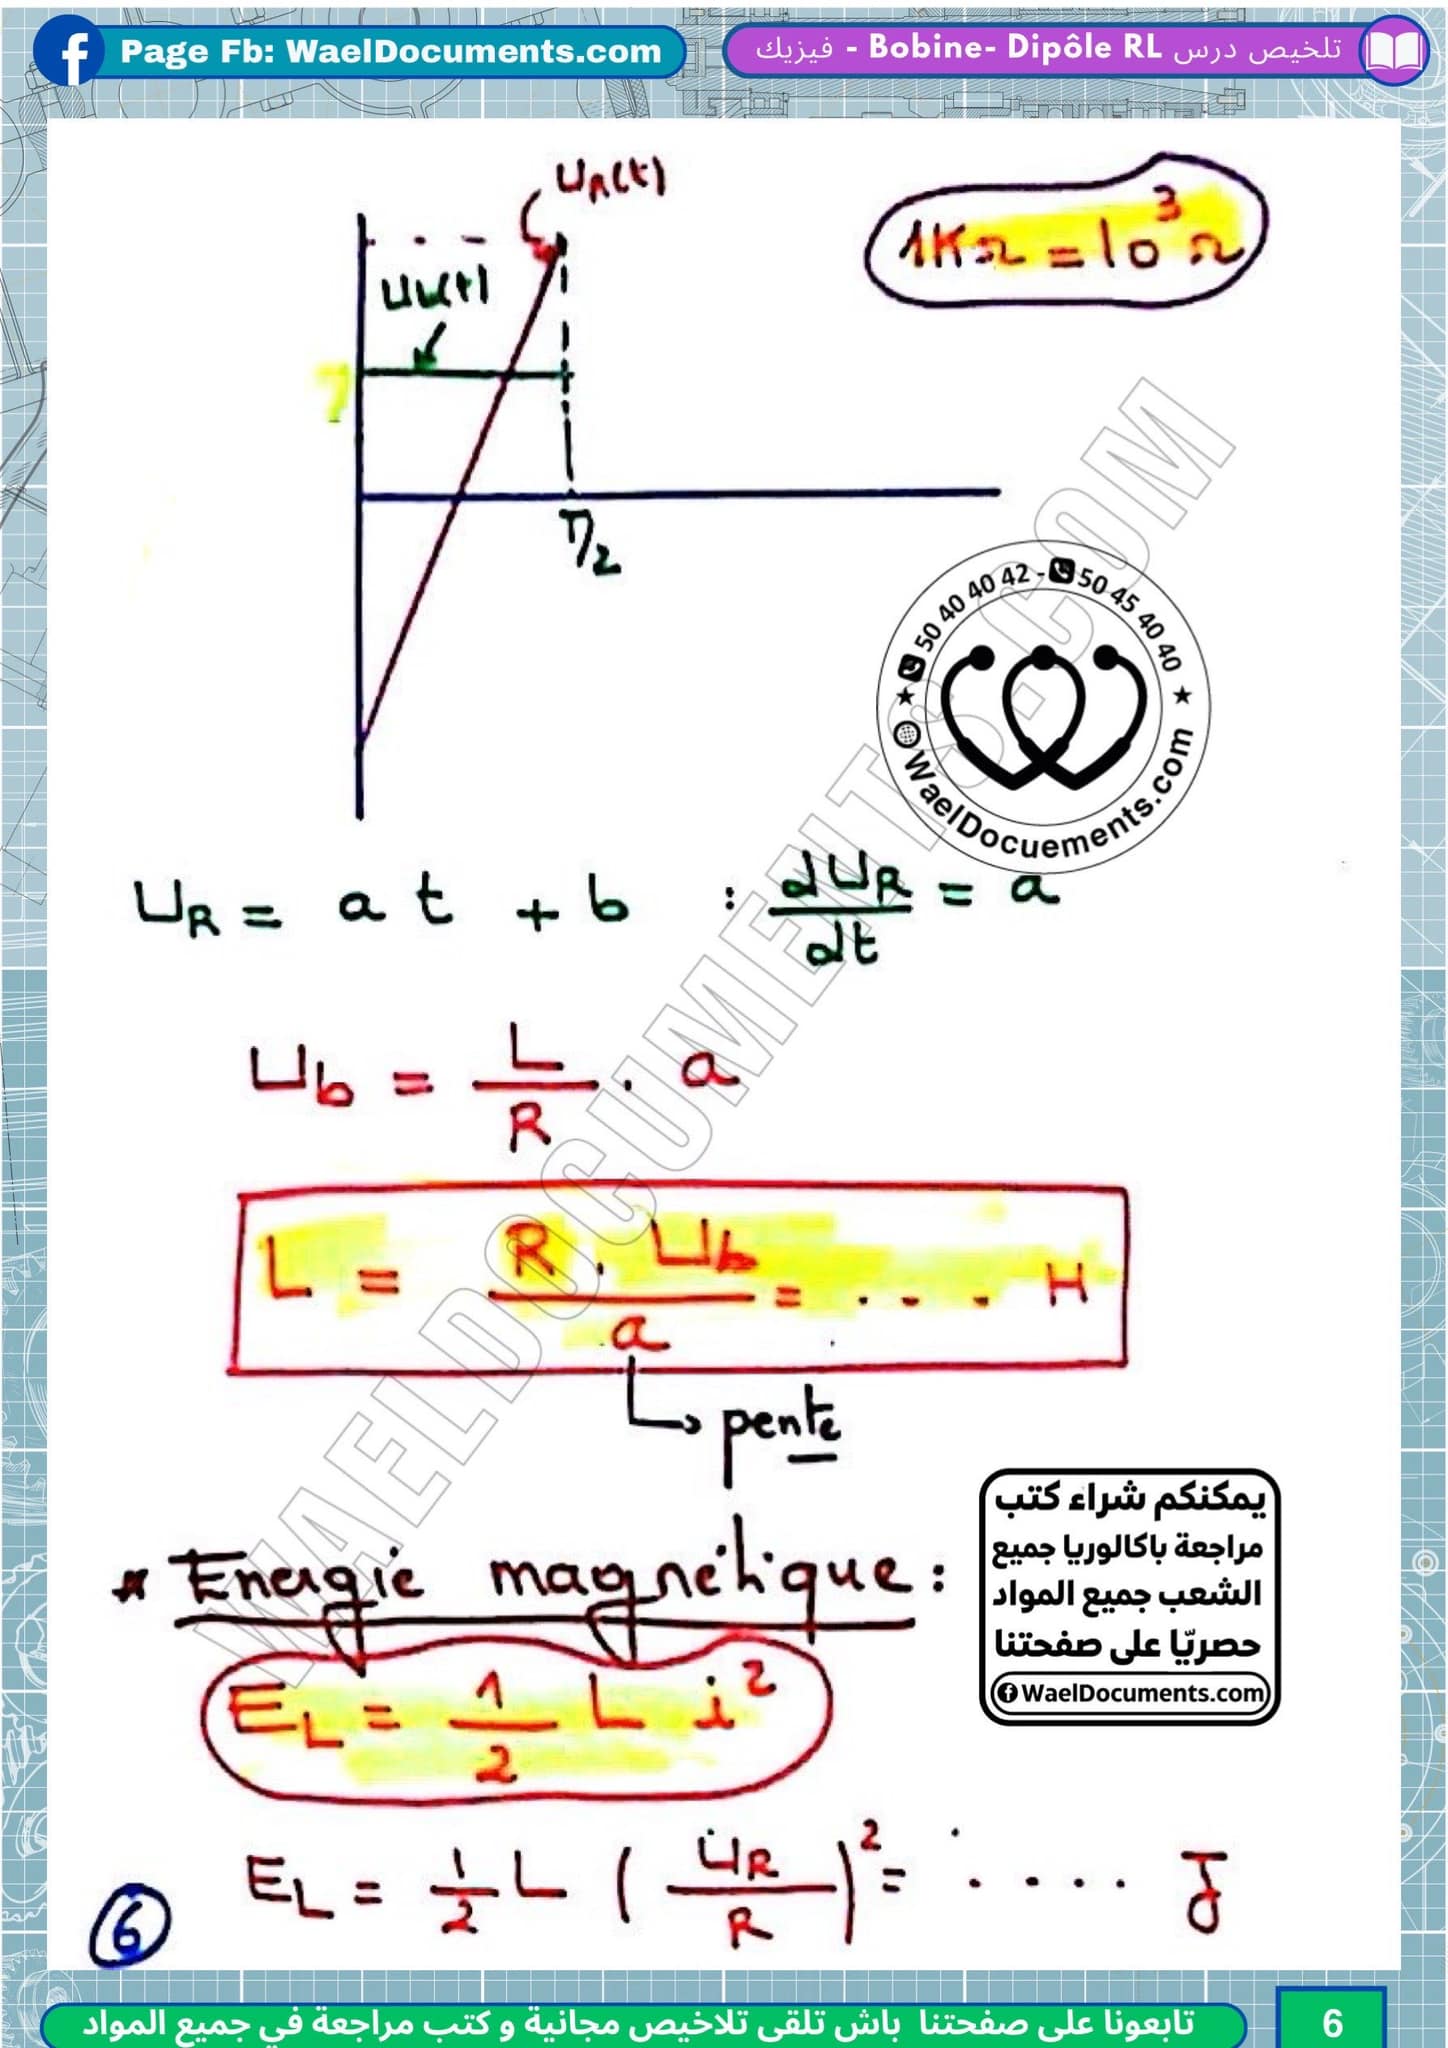 Page Fb: WaelDocuments.com
تلخيص درس Bobine- Dipôle RL - فيزيك
uR(t)
1KΩ = 10³ Ω
ub(t)
T/2
50 40 40 42 - 50 45 40 40
WaelDocuements.com
WAELDOCUMENTS.COM
UR = a t + b : dUR/dt = a
Ub = L/R . a
L = R . Ub / a = .... H
pente
* Energie magnétique :
EL = 1/2 L i²
يمكنكم شراء كتب
مراجعة باكالوريا جميع
الشعب جميع المواد
حصريّا على صفحتنا
WaelDocuments.com
EL = 1/2 L (UR/R)² = ..... J
6
تابعونا على صفحتنا باش تلقى تلاخيص مجانية و كتب مراجعة في جميع المواد
6